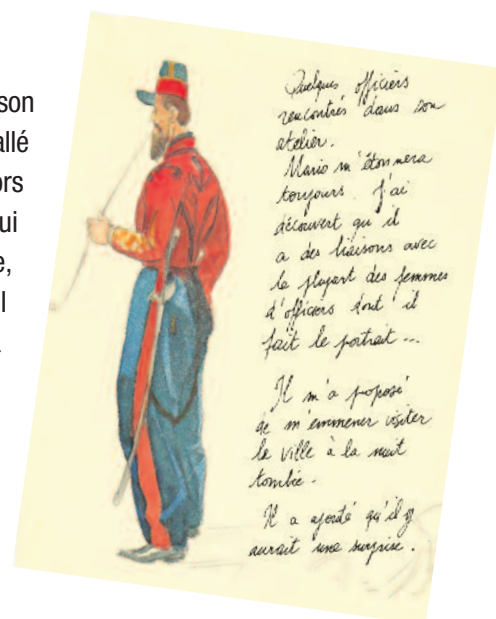 son
allé
ors
ui
e,
l
Quelques officiers
rencontrés dans son
atelier.
Mario m'étonnera
toujours. J'ai
découvert qu'il
a des liaisons avec
la plupart des femmes
d'officiers dont il
fait le portrait ...
Il m'a proposé
de m'emmener visiter
la ville à la nuit
tombée.
Il a ajouté qu'il y
aurait une surprise.